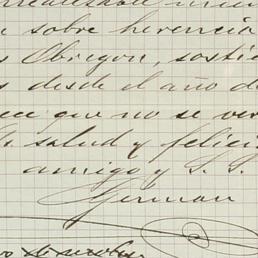 sobre herencia
Obregon, sostie
s desde el año d
ece que no se ver
salud y felici
amigo y S. S.
German